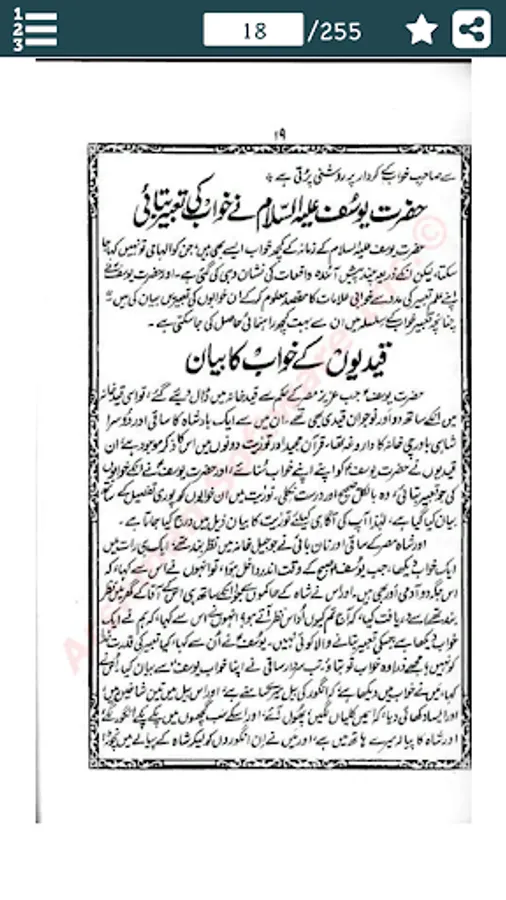 1
2
3
18 /255
۱۹
سے صاحبِ خواب کے کردار پر روشنی پڑتی ہے
حضرت یوسف علیہ السلام نے خواب کی تعبیر بتائی
حضرت یوسف علیہ السلام کے زمانہ کے کچھ خواب ایسے بھی ہیں؛ جن کو الہامی تو نہیں کہا جا
سکتا، لیکن انکے ذریعہ چند پیش آئندہ واقعات کی نشان دہی کی گئی ہے۔ اور حضرت یوسف نے
اپنے علم تعبیر کی مدد سے خوابی علامات کا مقصد معلوم کر کے ان خوابوں کی تعبیریں بیان کی ہیں
چنانچہ تعبیر خواب کے سلسلہ میں ان سے بہت کچھ راہنمائی حاصل کی جا سکتی ہے۔
قیدیوں کے خواب کا بیان
حضرت یوسفؑ جب عزیز مصر کے حکم سے قید خانہ میں ڈال دیئے گئے، تو اسی قید خانہ
میں انکے ساتھ دو اور نوجوان قیدی بھی تھے۔ ان میں سے ایک بادشاہ کا ساقی اور دوسرا
شاہی باورچی خانہ کا داروغہ تھا، قرآن مجید اور توریت دونوں میں اس کا ذکر موجود ہے، ان
قیدیوں نے حضرت یوسفؑ کو اپنے اپنے خواب سنائے، اور حضرت یوسفؑ نے انکے خوابوں
کی جو تعبیر بتائی، وہ بالکل صحیح اور درست نکلی، توریت میں ان خوابوں کو پوری تفصیل کے ساتھ
بیان کیا گیا ہے، لہٰذا آپ کی آگاہی کیلئے توریت کا بیان ذیل میں درج کیا جاتا ہے۔
اور شاہ مصر کے ساقی اور نان بائی نے جو جیل خانہ میں نظر بند تھے، ایک ہی رات میں
ایک خواب دیکھا، جب یوسفؑ صبح کے وقت اندر داخل ہوا، تو انہوں نے اس سے کہا، کہ
اس جگہ دو آدمی اور بھی ہیں۔ اور اس نے شاہ کے حاکموں سے جو انکے ساتھ ہی اس کے آقا کے گھر میں نظر
بند تھے، سے دریافت کیا، کہ آج تم کیوں اداس نظر آتے ہو؟ انہوں نے اس سے کہا، کہ ہم نے ایک
خواب دیکھا ہے جسکی تعبیر بتانے والا کوئی نہیں۔ یوسفؑ نے اُن سے کہا، کیا تعبیر کی قدرت خدا
کو نہیں؟ مجھے ذرا وہ خواب تو بتاؤ، تب سردار ساقی نے اپنا خواب یوسفؑ سے بیان کیا، اُس نے
کہا، میں نے خواب میں دیکھا ہے، کہ انگور کی بیل میرے سامنے ہے، اور اس بیل میں تین شاخیں ہیں؛
اور ایسا دکھائی دیا، کہ اسمیں کلیاں لگیں، پھول آئے، اور اسکے سب گچھوں میں پکے پکے انگور لگے،
اور شاہ کا پیالہ میرے ہاتھ میں ہے، اور میں نے ان انگوروں کو لیکر شاہ کے پیالے میں نچوڑا